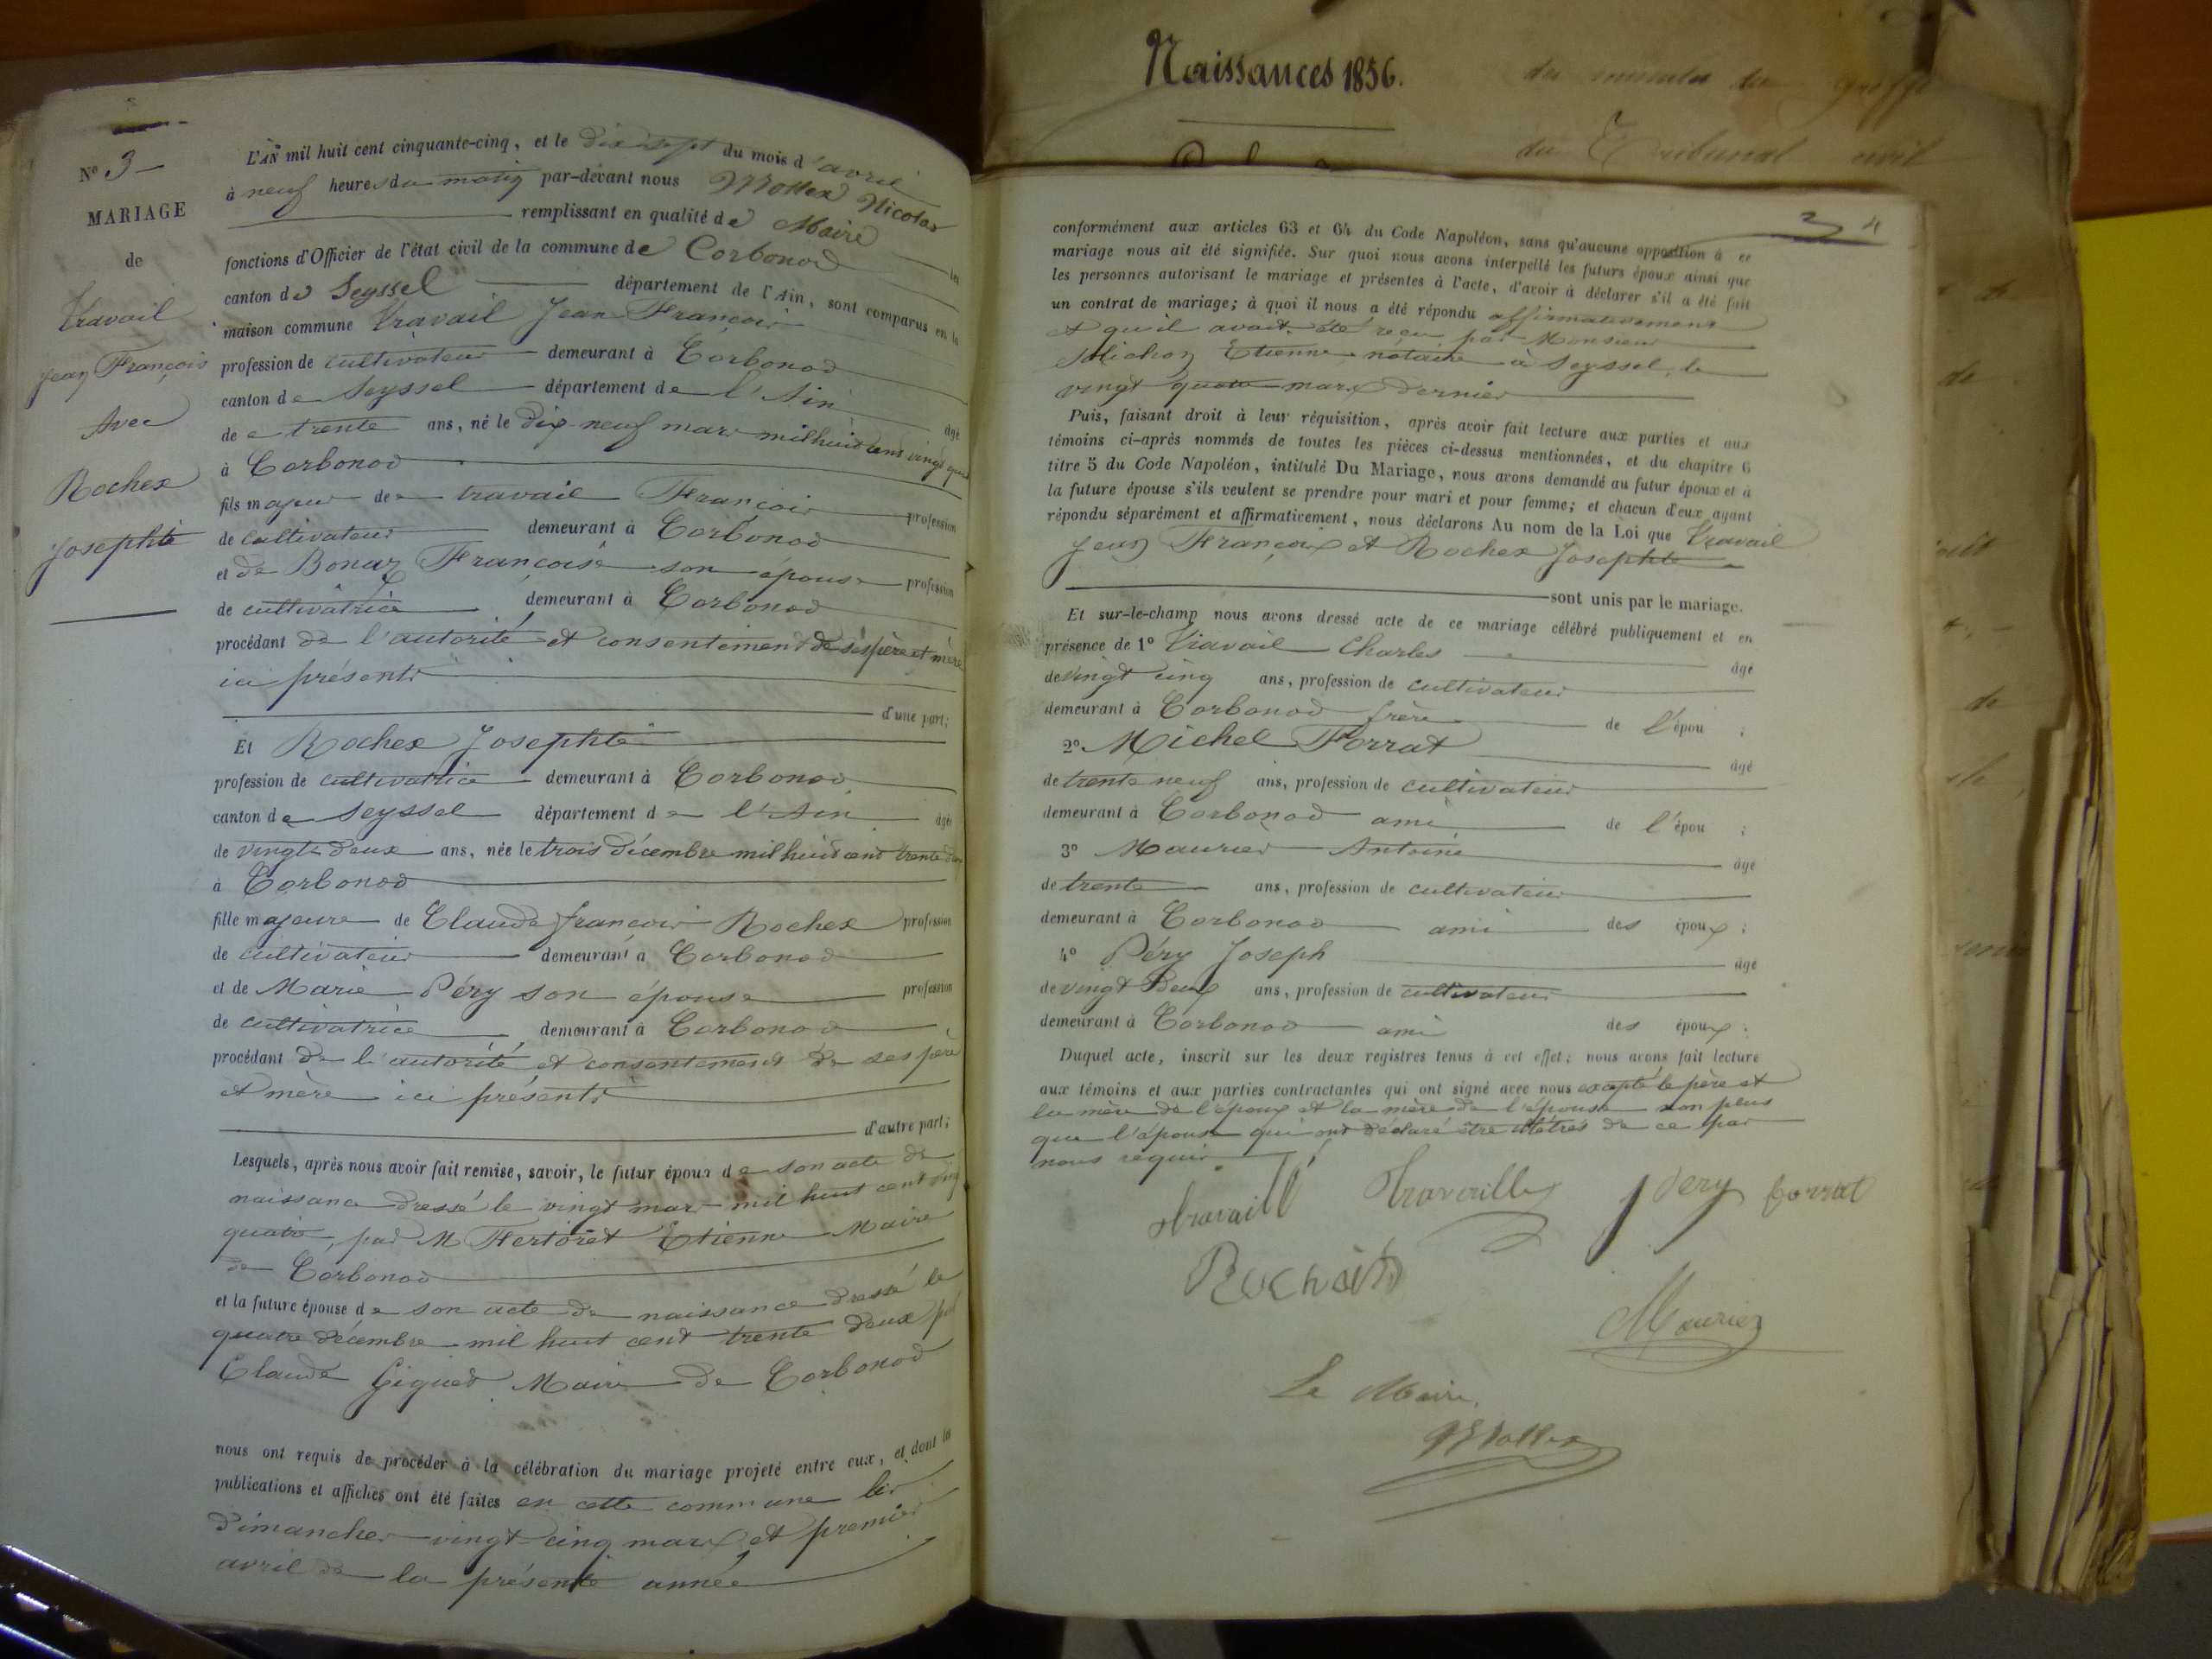 Naissances 1856.
du greffe
du Tribunal civil
N° 3
MARIAGE
de
Travail
Jean François
Avec
Rochex
Josephte
L'AN mil huit cent cinquante-cinq, et le dix sept du mois d'avril
à neuf heures du matin par-devant nous Mollex Nicolas
remplissant en qualité de Maire les
fonctions d'Officier de l'état civil de la commune de Corbonod
canton de Seyssel département de l'Ain, sont comparus en la
maison commune Travail Jean François
profession de cultivateur demeurant à Corbonod
canton de Seyssel département de l'Ain âgé
de trente ans, né le dix neuf mars mil huit cent vingt
à Corbonod
fils majeur de travail François profession
de cultivateur demeurant à Corbonod
et de Bonaz Françoise son épouse profession
de cultivatrice demeurant à Corbonod
procédant de l'autorité et consentement de ses père et mère
ici présents
d'une part;
Et Rochex Josephte
profession de cultivatrice demeurant à Corbonod
canton de Seyssel département de l'Ain âgée
de vingt deux ans, née le trois décembre mil huit cent trente deux
à Corbonod
fille majeure de Claude françois Rochex profession
de cultivateur demeurant à Corbonod
et de Marie Péry son épouse profession
de cultivatrice demeurant à Corbonod
procédant de l'autorité et consentement de ses père
et mère ici présents
d'autre part;
Lesquels, après nous avoir fait remise, savoir, le futur époux de son acte de
naissance dressé le vingt mars mil huit cent vingt
quatre, par M Fertoret Etienne Maire
de Corbonod
et la future épouse de son acte de naissance dressé le
quatre décembre mil huit cent trente deux par
Claude Giguet Maire de Corbonod
nous ont requis de procéder à la célébration du mariage projeté entre eux, et dont les
publications et affiches ont été faites en cette commune les
dimanches vingt-cinq mars et premier
avril de la présente année
3 4
conformément aux articles 63 et 64 du Code Napoléon, sans qu'aucune opposition à ce
mariage nous ait été signifiée. Sur quoi nous avons interpellé les futurs époux ainsi que
les personnes autorisant le mariage et présentes à l'acte, d'avoir à déclarer s'il a été fait
un contrat de mariage; à quoi il nous a été répondu affirmativement
et qu'il avait été reçu par Monsieur
Etienne notaire à Seyssel, le
vingt quatre mars dernier
Puis, faisant droit à leur réquisition, après avoir fait lecture aux parties et aux
témoins ci-après nommés de toutes les pièces ci-dessus mentionnées, et du chapitre 6
titre 5 du Code Napoléon, intitulé Du Mariage, nous avons demandé au futur époux et à
la future épouse s'ils veulent se prendre pour mari et pour femme; et chacun d'eux ayant
répondu séparément et affirmativement, nous déclarons Au nom de la Loi que Travail
Jean François et Rochex Josephte
sont unis par le mariage.
Et sur-le-champ nous avons dressé acte de ce mariage célébré publiquement et en
présence de 1° Travail Charles âgé
de vingt cinq ans, profession de cultivateur
demeurant à Corbonod frère de l'épou ;
2° Michel Forrat âgé
de trente neuf ans, profession de cultivateur
demeurant à Corbonod ami de l'épou ;
3° Maurier Antoine âgé
de trente ans, profession de cultivateur
demeurant à Corbonod ami des époux ;
4° Péry Joseph âgé
de vingt Deux ans, profession de cultivateur
demeurant à Corbonod ami des époux ;
Duquel acte, inscrit sur les deux registres tenus à cet effet; nous avons fait lecture
aux témoins et aux parties contractantes qui ont signé avec nous excepté le père et
la mère de l'époux et la mère de l'épouse non plus
que l'épouse qui ont déclaré être illétrés de ce par
nous requis
travaill Travaille J Pery forrat
Rochaix
Maurier
Le Maire,
Mollex